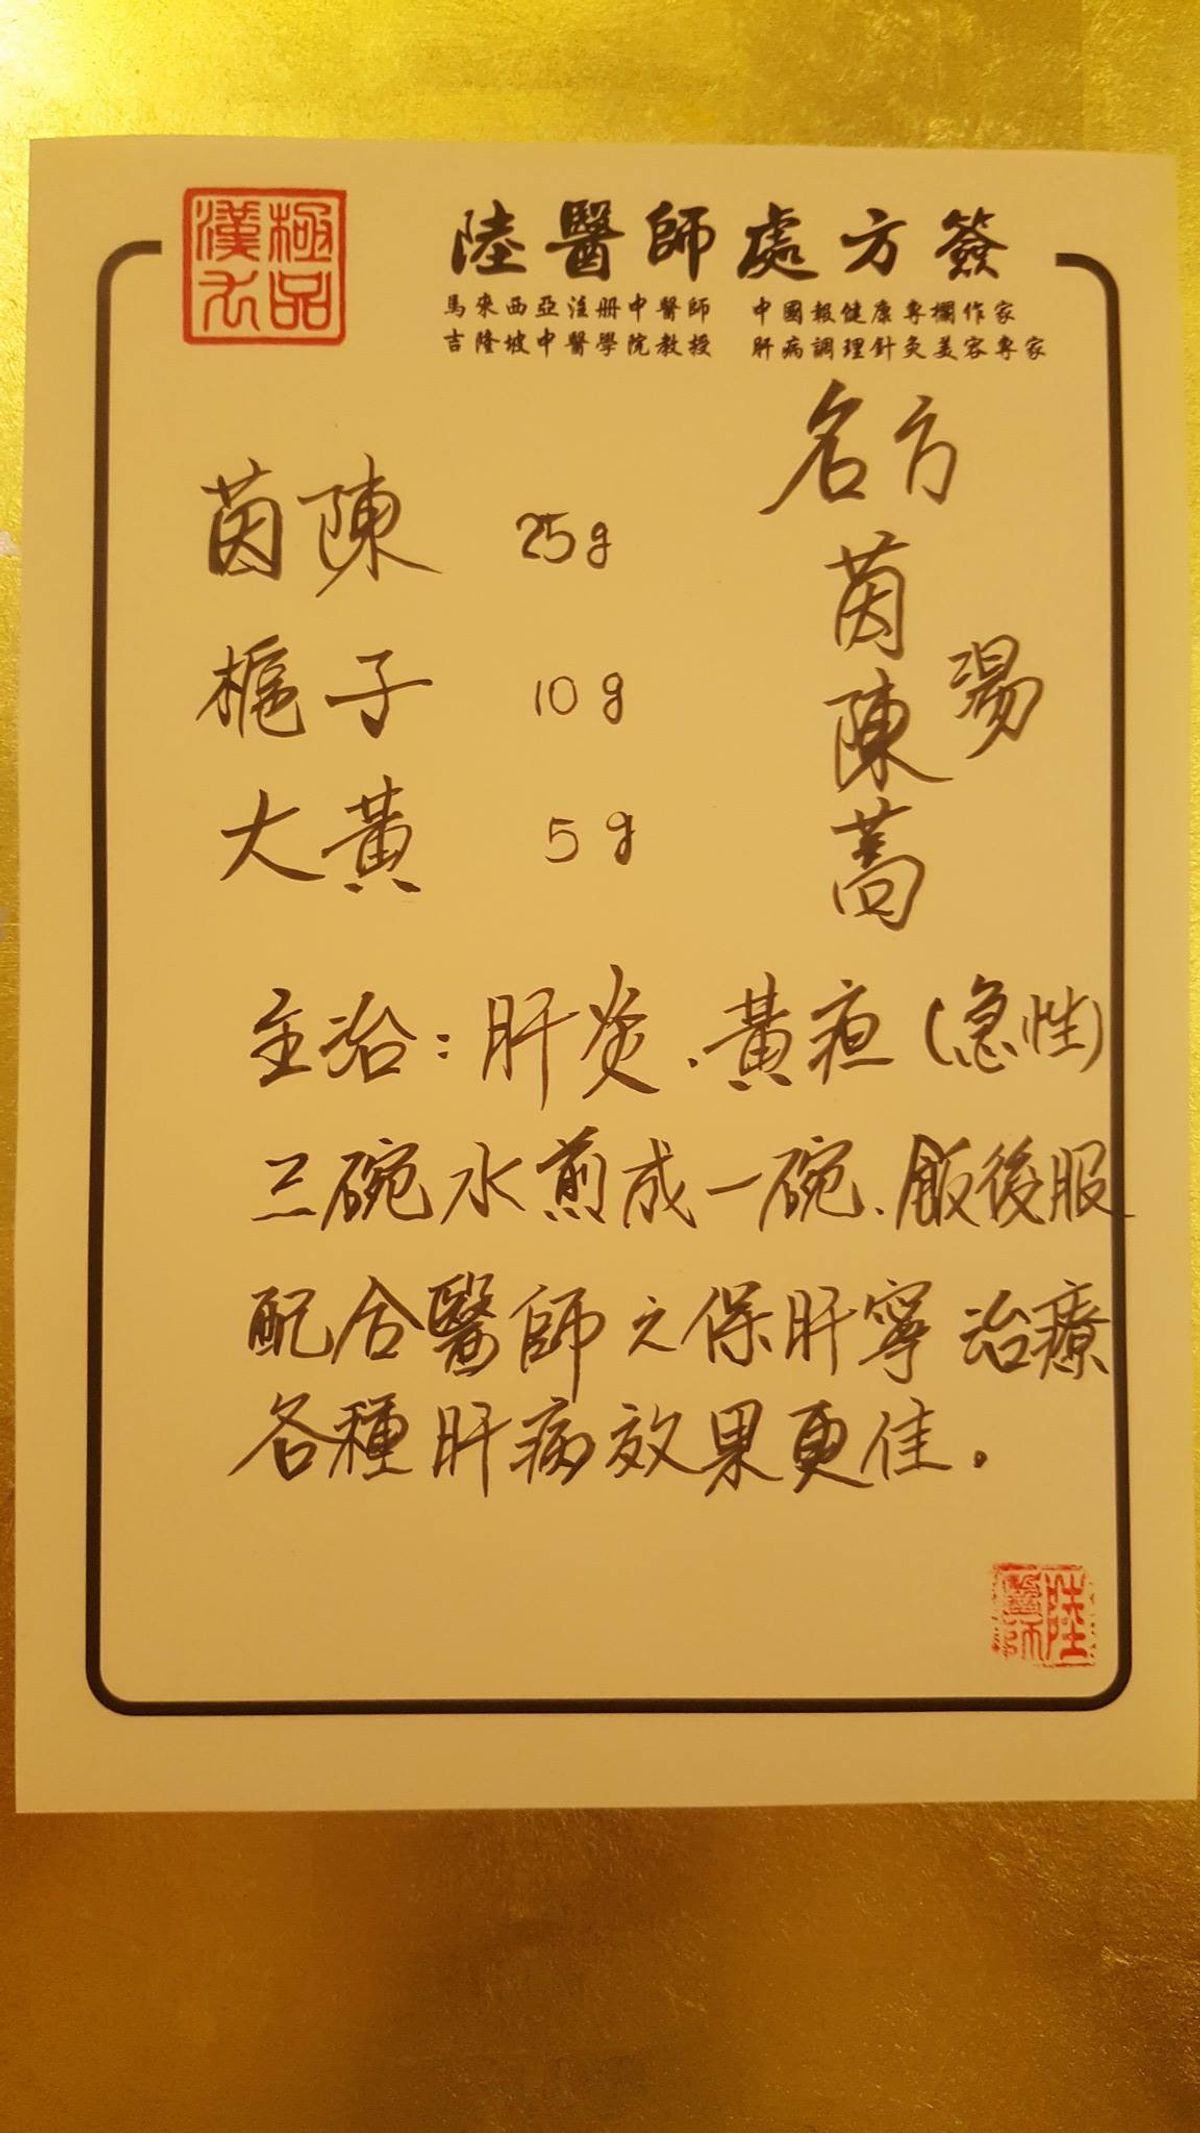 極品
漢方
陸醫師處方簽
馬來西亞注冊中醫師 中國報健康專欄作家
吉隆坡中醫學院教授 肝病調理針灸美容專家
名方
茵陳蒿
湯
茵陳 25g
梔子 10g
大黃 5g
主治：肝炎、黃疸(急性)
三碗水煎成一碗、飯後服
配合醫師之保肝寧治療
各種肝病效果更佳。
陸
醫師